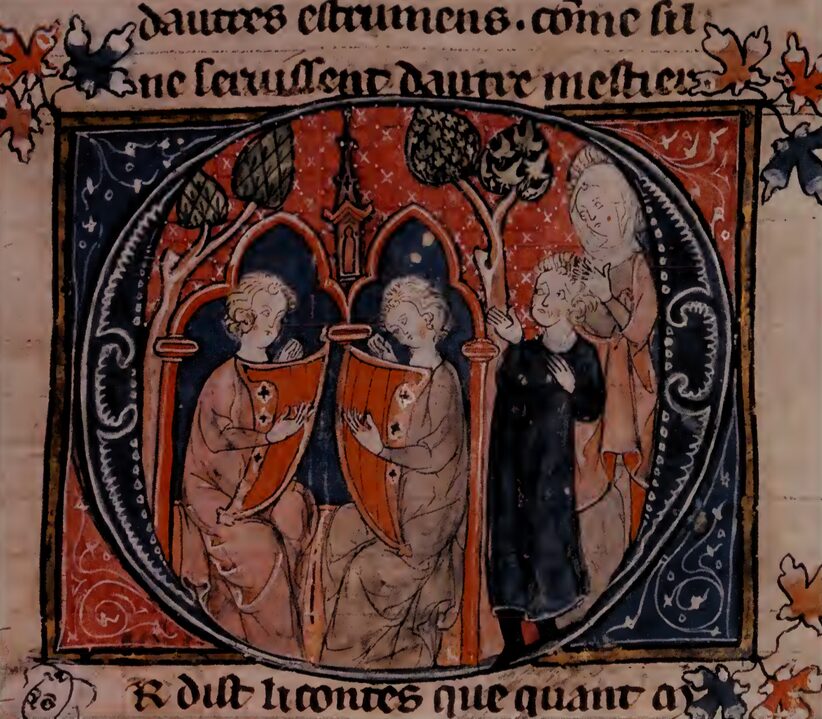 dautres estrumens. cōme sil
ne seruissent dautre mestier
R dist li contes que quant